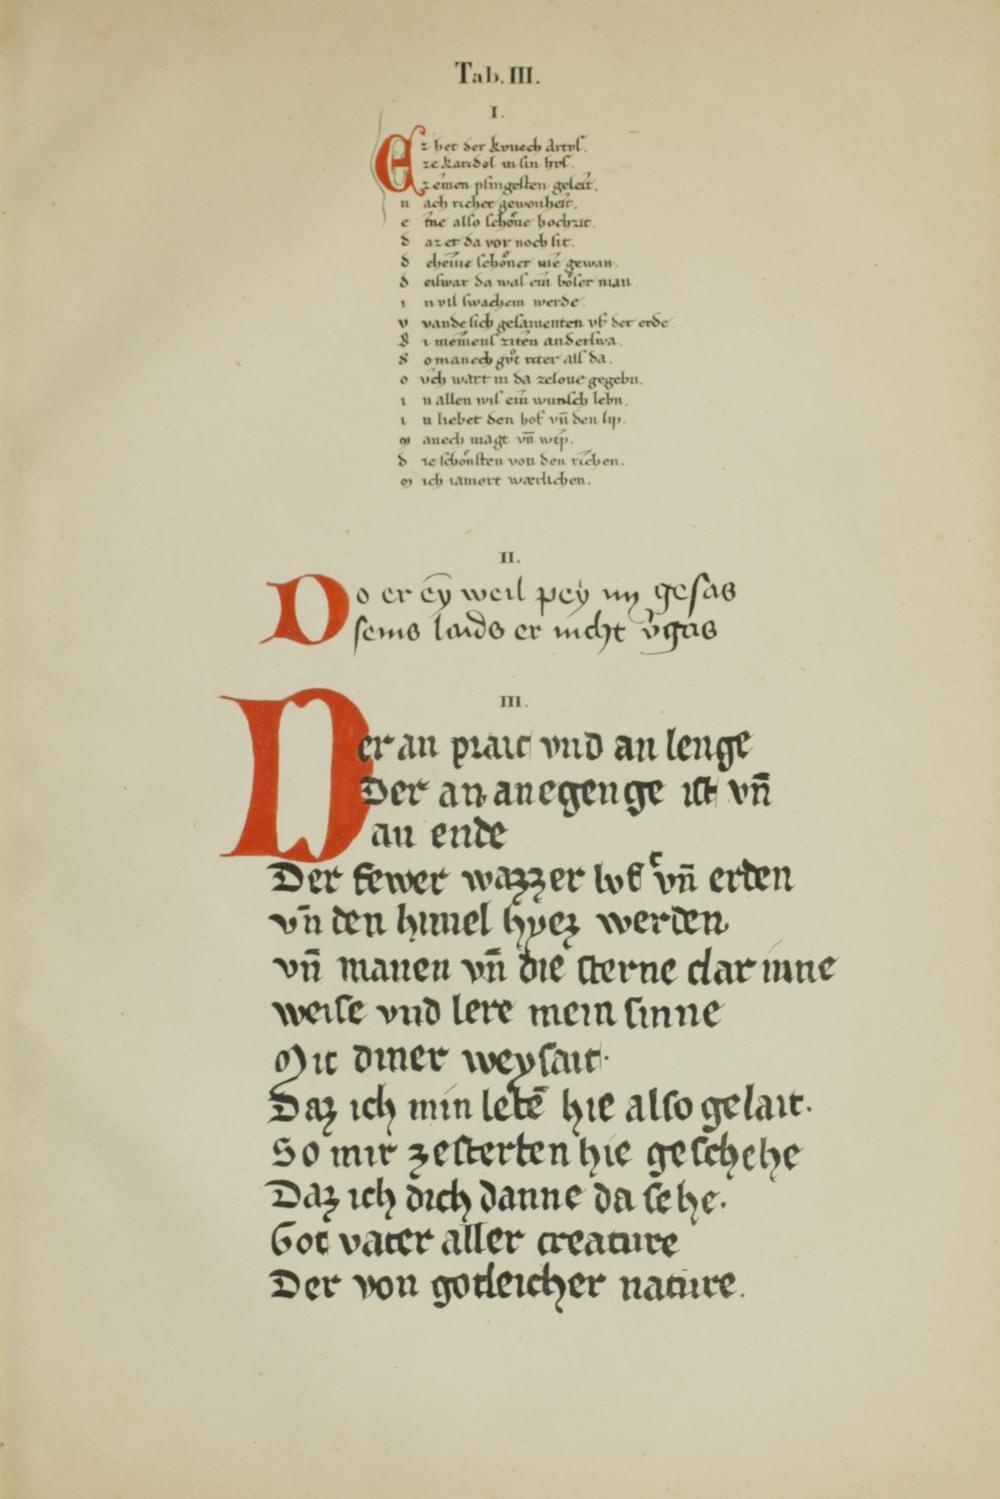 Tab. III.
I.
Ez het der kvnech Artvſ.
ze karidol in ſin hvſ.
zeinen pfingeſten geleit.
n ach richer gewonheit.
e ine alſo ſchône hochzit.
d az er da vor noch ſit.
d eheine ſchôner nie gewan.
d eiſwar da waſ ein bôſer man
i n vil ſwachem werde.
v vande ſich geſamenten vf der erde
ſ i meineuſ ziten anderſwa.
ſ o manech gvͦt riter alſ da.
o vch wart in da zehoue gegebn.
i n allen wiſ ein wunſch lebn.
i n liebet den hof vn̄ den lip.
m anech magt vn̄ wip.
d ie ſchônſten von den richen.
m ich iamert wærlichen.
II.
Do er ey̅ weil pey im geſas
ſeins laids er nicht v̉gas
III.
Der an prait vnd an lenge
Der an anegenge iſt vn̄
an ende
Der fewer wazzer lvft vn̄ erden
vn̄ den himel hyez werden
vn̄ manen vn̄ die ſterne dar inne
weiſe vnd lere mein ſinne
Mit diner weyſait·
Daz ich min lebē hie alſo gelait.
So mir zeſterten hie geſchehe
Daz ich dich danne da ſehe.
Got vater aller creature
Der von gotleicher nature.